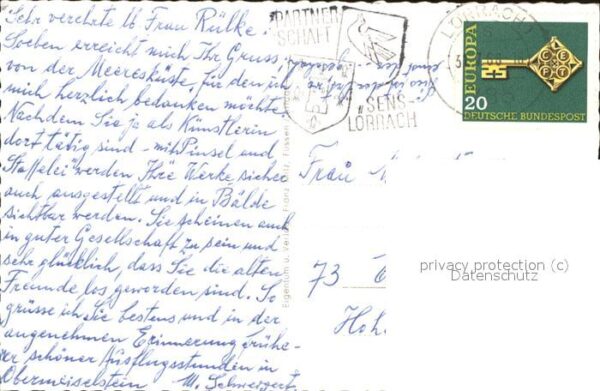 Sehr verehrte lb Frau Rübke!
Soeben erreicht mich Ihr Gruss,
von der Meeresküste, für den ich
mich herzlich bedanken möchte.
Nachdem Sie ja als Künstlerin
dort tätig sind - mit Pinsel und
Staffelei werden Ihre Werke sicher
auch ausgestellt und in Bälde
sichtbar werden. Sie scheinen auch
in guter Gesellschaft zu sein und
sehr glücklich, dass Sie die alten
Freunde los geworden sind. So
grüsse ich Sie bestens und in der
angenehmen Erinnerung frühe-
er schöner Ausflugsstunden in
Obermaiselstein M. Schweizert
PARTNER
SCHAFT
SENS
LÖRRACH
LÖRRACH
EUROPA
CEPT
20
DEUTSCHE BUNDESPOST
Eigentum u. Füssen
Frau
73
Hoh
privacy protection (c)
Datenschutz